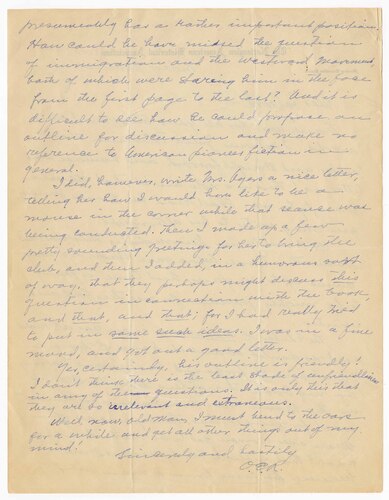 presumeably has a rather important position.
How could he have missed the question
of immigration and the westward movement,
both of which were staring him in the face
from the first page to the last? And it is
difficult to see how he could propose an
outline for discussion and make no
reference to American pioneer fiction in
general.
I did, however, write Mrs. a nice letter,
telling her how I would have like to be a
mouse in the corner while that seance was
being conducted. Then I made up a few
pretty sounding greetings for her to bring the
club, and then I added, in a humorous sort
of way, that they perhaps might discuss this
question in connection with the book,
and that, and that; for I had really tried
to put in some such ideas. I was in a fine
mood, and got out a good letter.
Yes, certainly, his outline is friendly!
I don't think there is the least shade of unfriendliness
in any of the questions. It is only this that
they are so irrelevant and extraneous.
Well now, old man, I must tend to the oars
for a while and get all other things out of my
mind!
Sincerely and hastily
O.E.R.